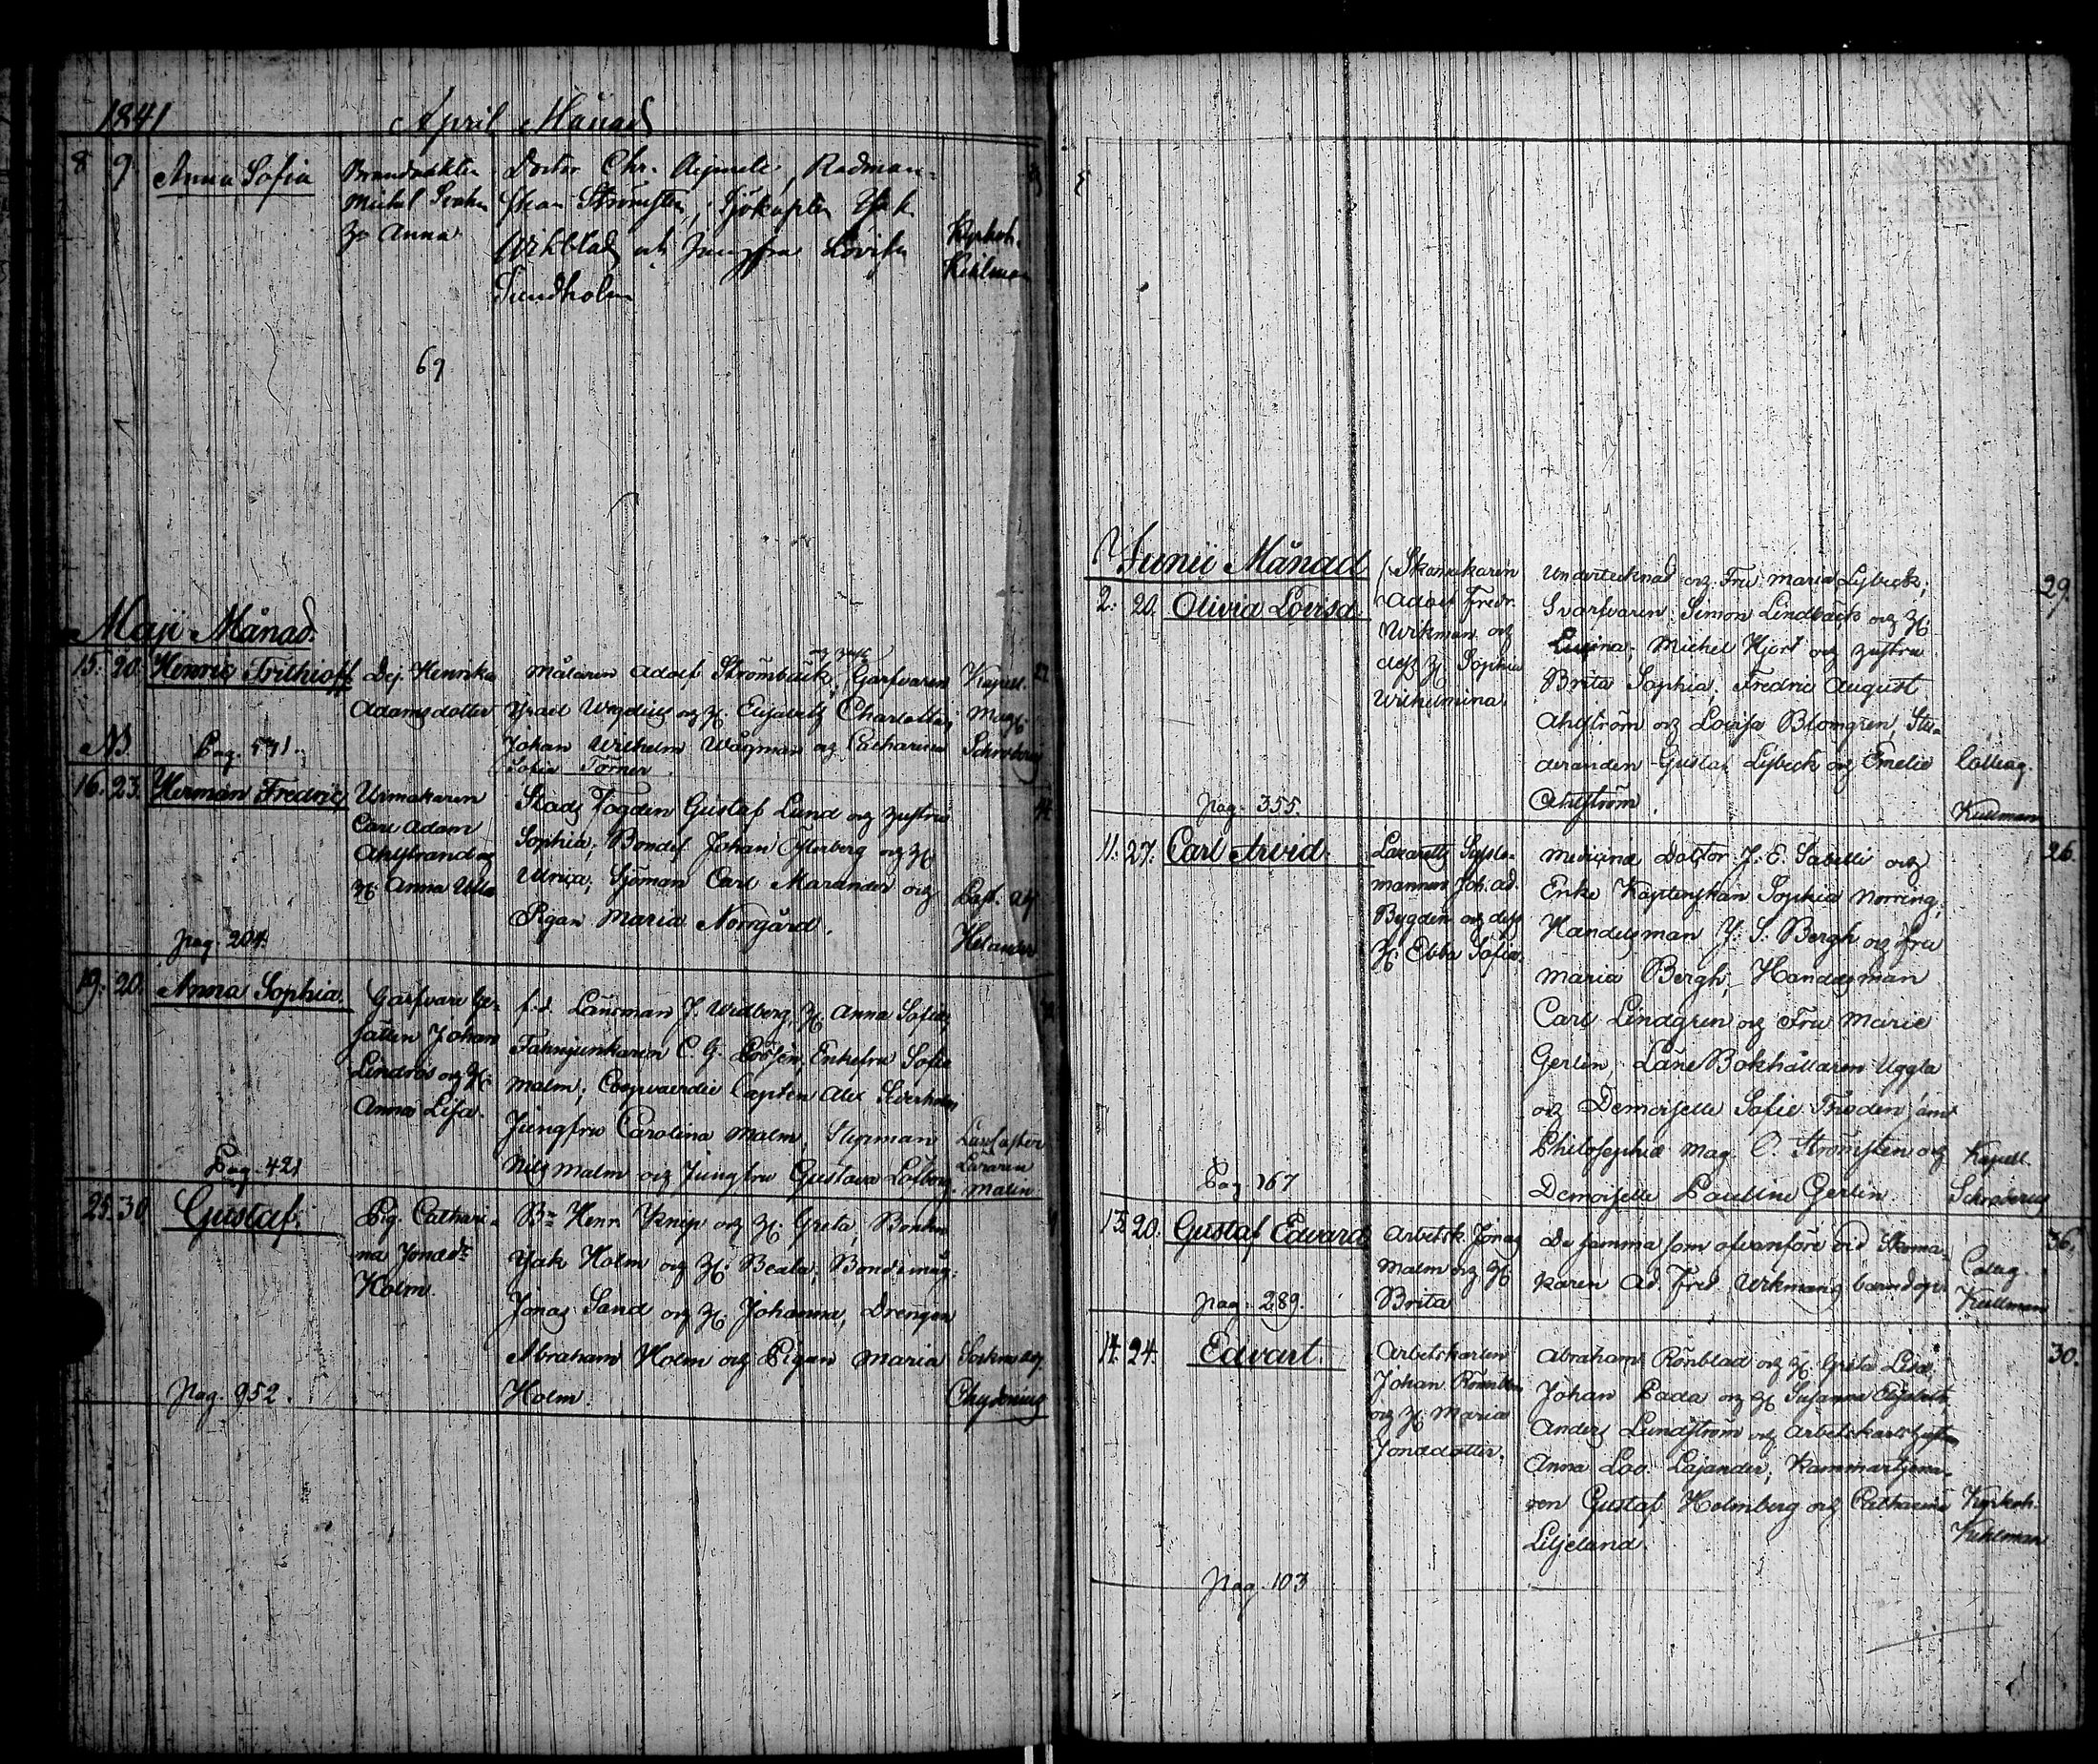 1841 April Månad
8 9 Anna Sofia
Michel Svahn
H. Anna
Doctor Chr. Aejmele, Radman-
skan Strömsten, Sjökapten
och Jungfru Lovisa
Sundholm
Kyrkoh.
69
Maji Månad.
15. 20. Henric Frithioff
Dej. Henrika
Adamsdotter
Målaren Adolf Strömbäck, Garfvaren
och H. Elisabeth Charlotta,
Johan Wilhelm Wågman och Catharina
Sofia Törner.
Kapell.
Mag.
Schroderus
NB Pag. 571.
16. 23. Herman Fredric
Urmakaren
Carl Adam
Ahlstrand och
H. Anna Ulla
Stads Fogden Gustaf Lund och hustru
Sophia; Bonden Johan Österberg och H.
Ulrica; Sjöman Carl Marander och
Pigan Maria Norrgård.
Past. Adj.
Helander
pag. 204.
19. 20. Anna Sophia.
Garfvare Ge-
sällen Johan
Lindros och H.
Anna Lisa.
f.d. Länsman J. Widberg, H. Anna Sofia;
Fahnjunkaren C. G. Enkefru Sofie
Malm; Capten Alex
Jungfru Carolina Malm, Styrman
Nils Malm och Jungfru Gustava Löfberg.
Läraren
Malin
Pag. 421
25. 30 Gustaf.
Pig. Cathari-
na Jonasdr
Holm.
Bn Henr. Knip och H. Greta, Bonden
Isak Holm och H. Beata; Bondemåg.
Jonas Sand och H. Johanna, Drengen
Abraham Holm och Pigan Maria
Holm.
Sockne Adj.
Chydenius
pag. 952.
Junii Månad
2. 20. Olivia Lovisa.
Skomakaren
Adolf Fredr.
Wikman och
dess H. Sophia
Wilhelmina.
Undertecknad och Fru Maria Lybeck;
Svarfvaren Simon Lindbäck och H.
Michel Hjort och hustru
Brita Sophia. Fredric August
Ahlström och Lovisa Blomgren, Stu-
deranden Gustaf Lybeck och Emelie
Ahlström.
Colleg.
Kullman
29.
pag. 355.
11. 27. Carl Arvid.
Lazaretts Syslo-
mannen Joh. Ad.
Bygdén och dess
H. Ebba Sofia.
Medicinæ Doctor J. E. Sabelli och
Enke Kaptenskan Sophia Norring;
Handelsman J. S. Bergh och Fru
Maria Bergh; Handelsman
Carl Lindgren och Fru Marie
Gerlin, Läne Bokhållaren Uggla
och Demoiselle Sofie Thoden samt
Philosophiæ Mag. O. Strömsten och
Demoiselle Pauline Gerlin
Kapell.
Schroderus
26
Pag. 167
13. 20. Gustaf Edvard
Arbetsk. Jonas
Malm och H.
Brita
De samma som ofvanföre vid Skoma-
karen Ad. Fred. Wikmans barndop.
Colleg.
Kullman
36.
pag. 289.
14. 24. Edvart.
Arbetskarlen
Johan Rönnblad
och H. Maria
Jonædotter.
Abraham Rönblad och H. Greta Lisa.
Johan Pada och H. Susanna Elisabeth
Anders Lundström och Arbetskarls hustru
Anna Lov. Lajander; Kammartjena-
ren Gustaf Holmberg och Catharina
Liljeland.
Kyrkoh.
Kuhlman
30.
pag. 103